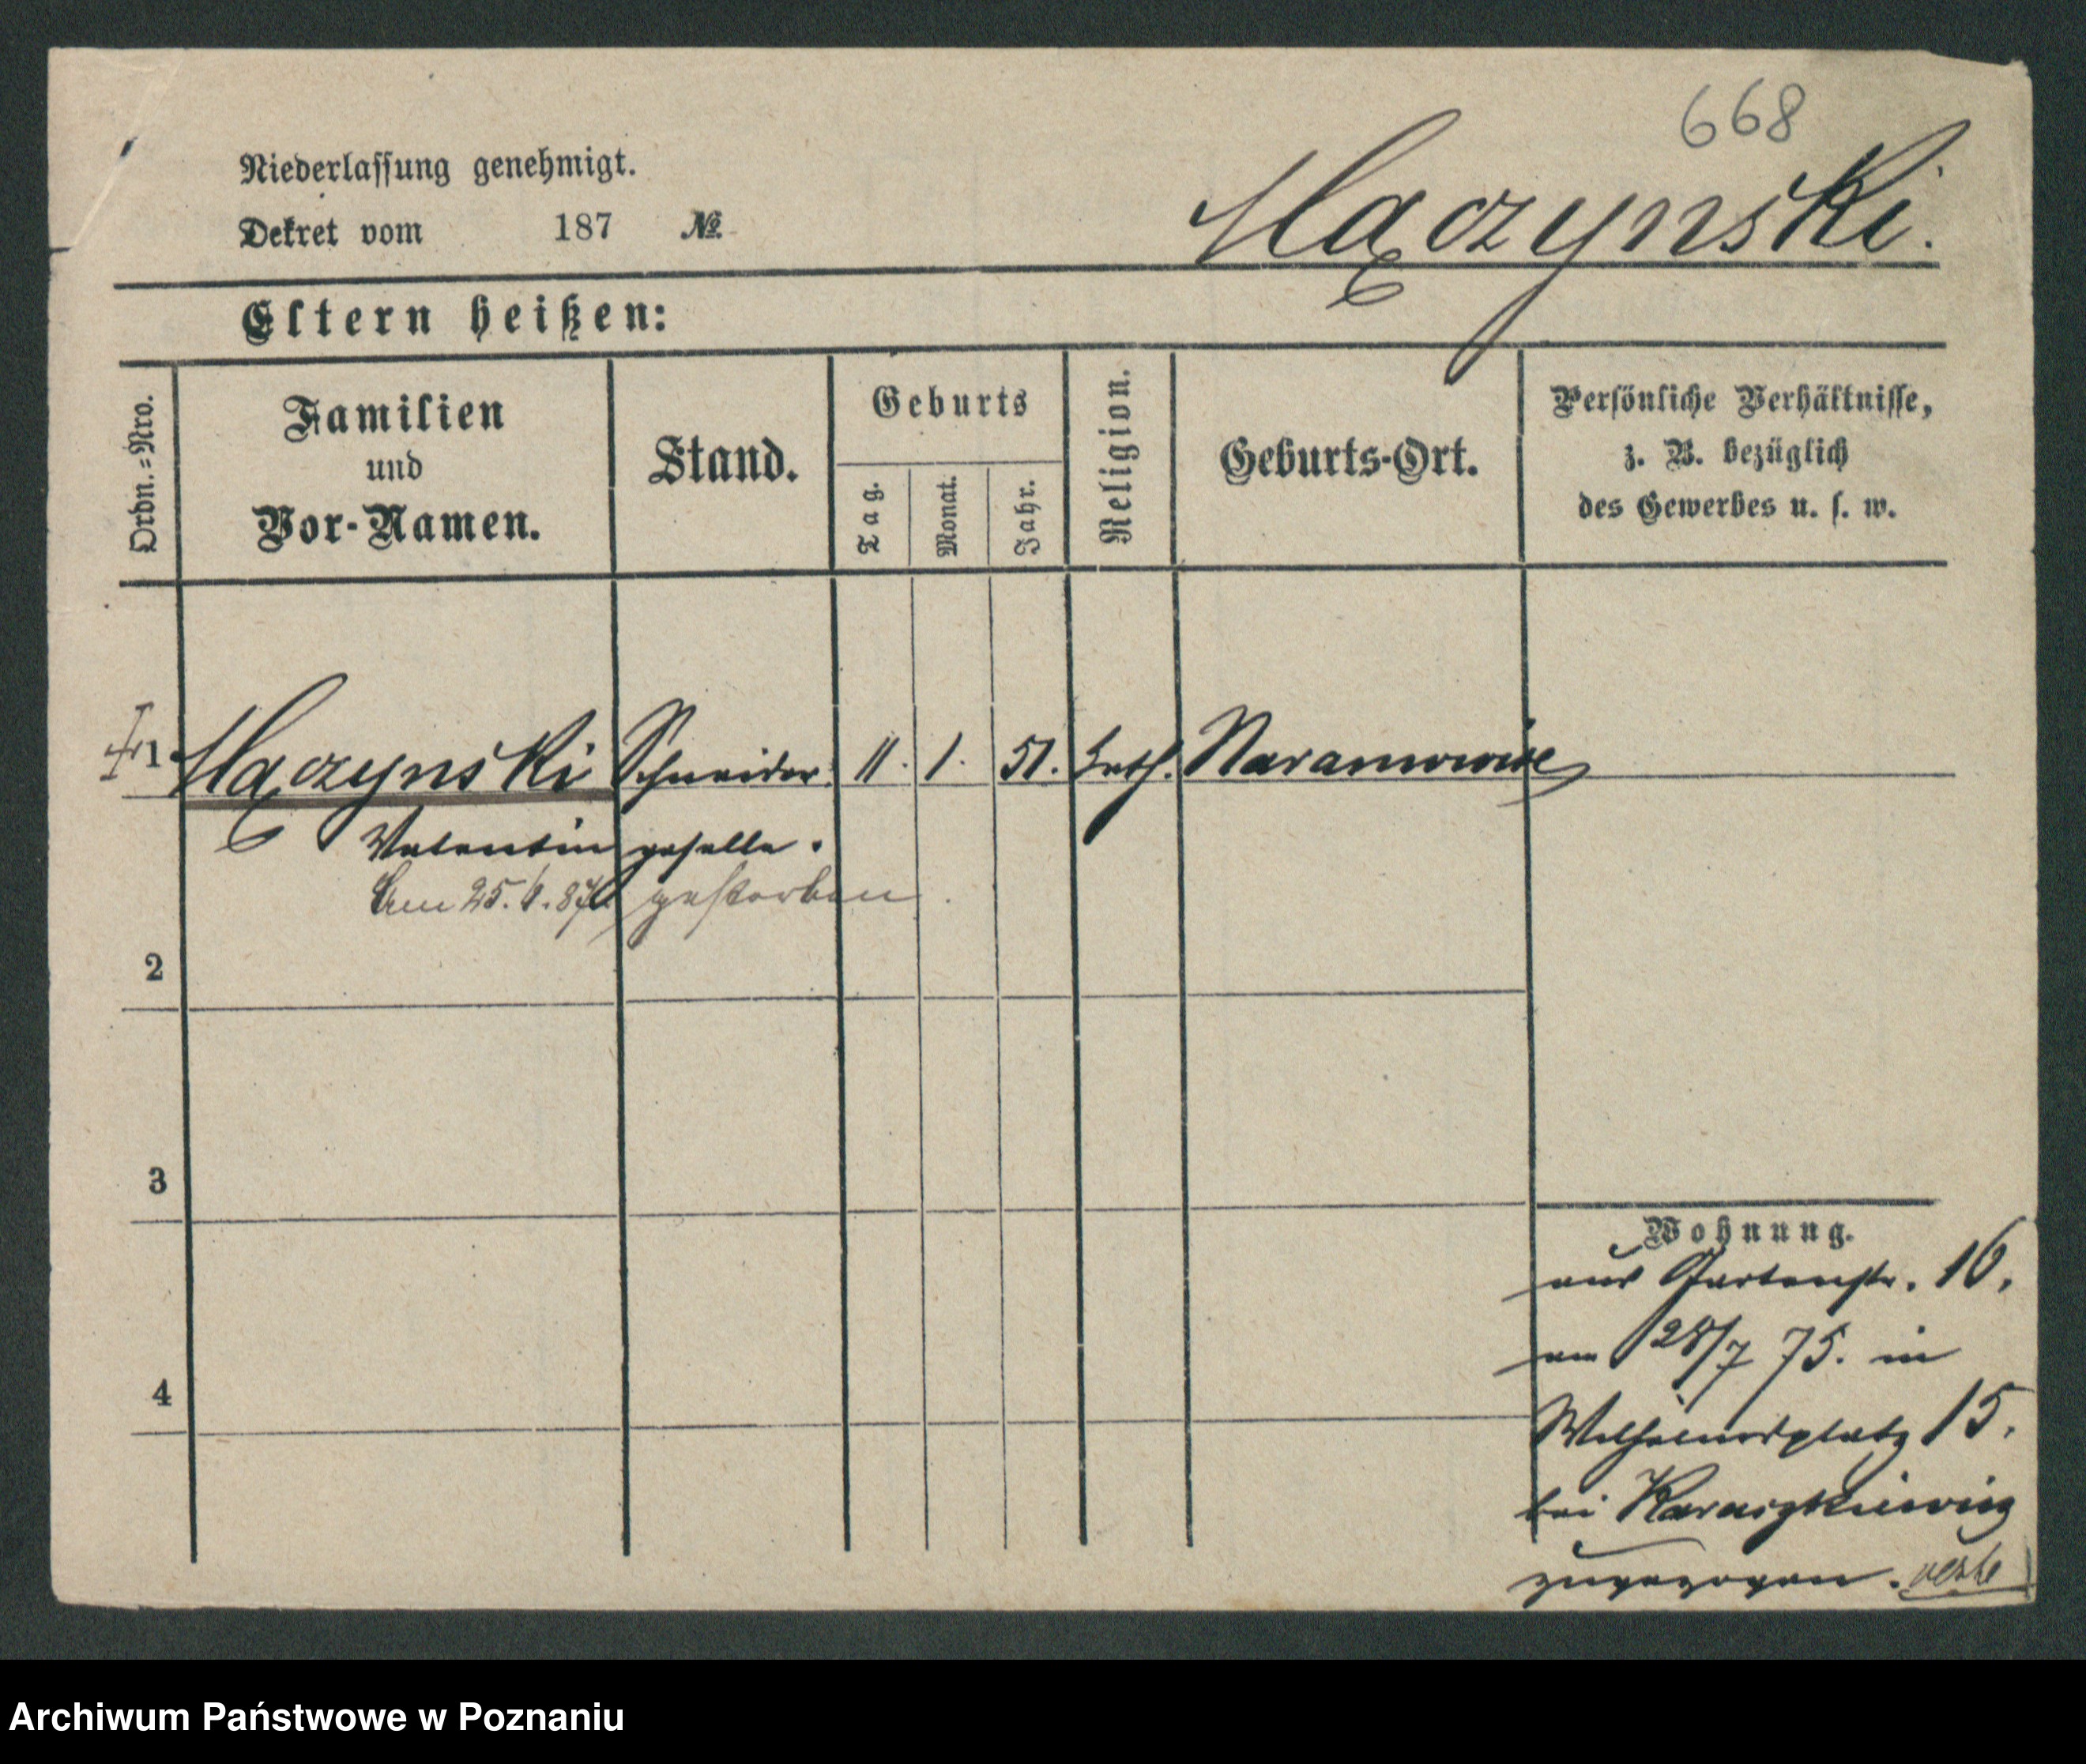 668
Niederlassung genehmigt.
Mączynski.
Dekret vom 187 №
Eltern heißen:
Ordn.=Nro.
Familien
und
Vor-Namen.
Stand.
Geburts
Tag.
Monat.
Jahr.
Religion.
Geburts-Ort.
Persönliche Verhältnisse,
z. B. bezüglich
des Gewerbes u. s. w.
1 Mączynski Schneider 11. 1. 51. kath. Naramowice
Valentin geselle.
Am 25. gestorben.
2
3
4
Wohnung.
aus Gartenstr. 16,
am 28/7 75. in
Wilhelmsplatz 15.
bei
zugezogen.
Archiwum Państwowe w Poznaniu